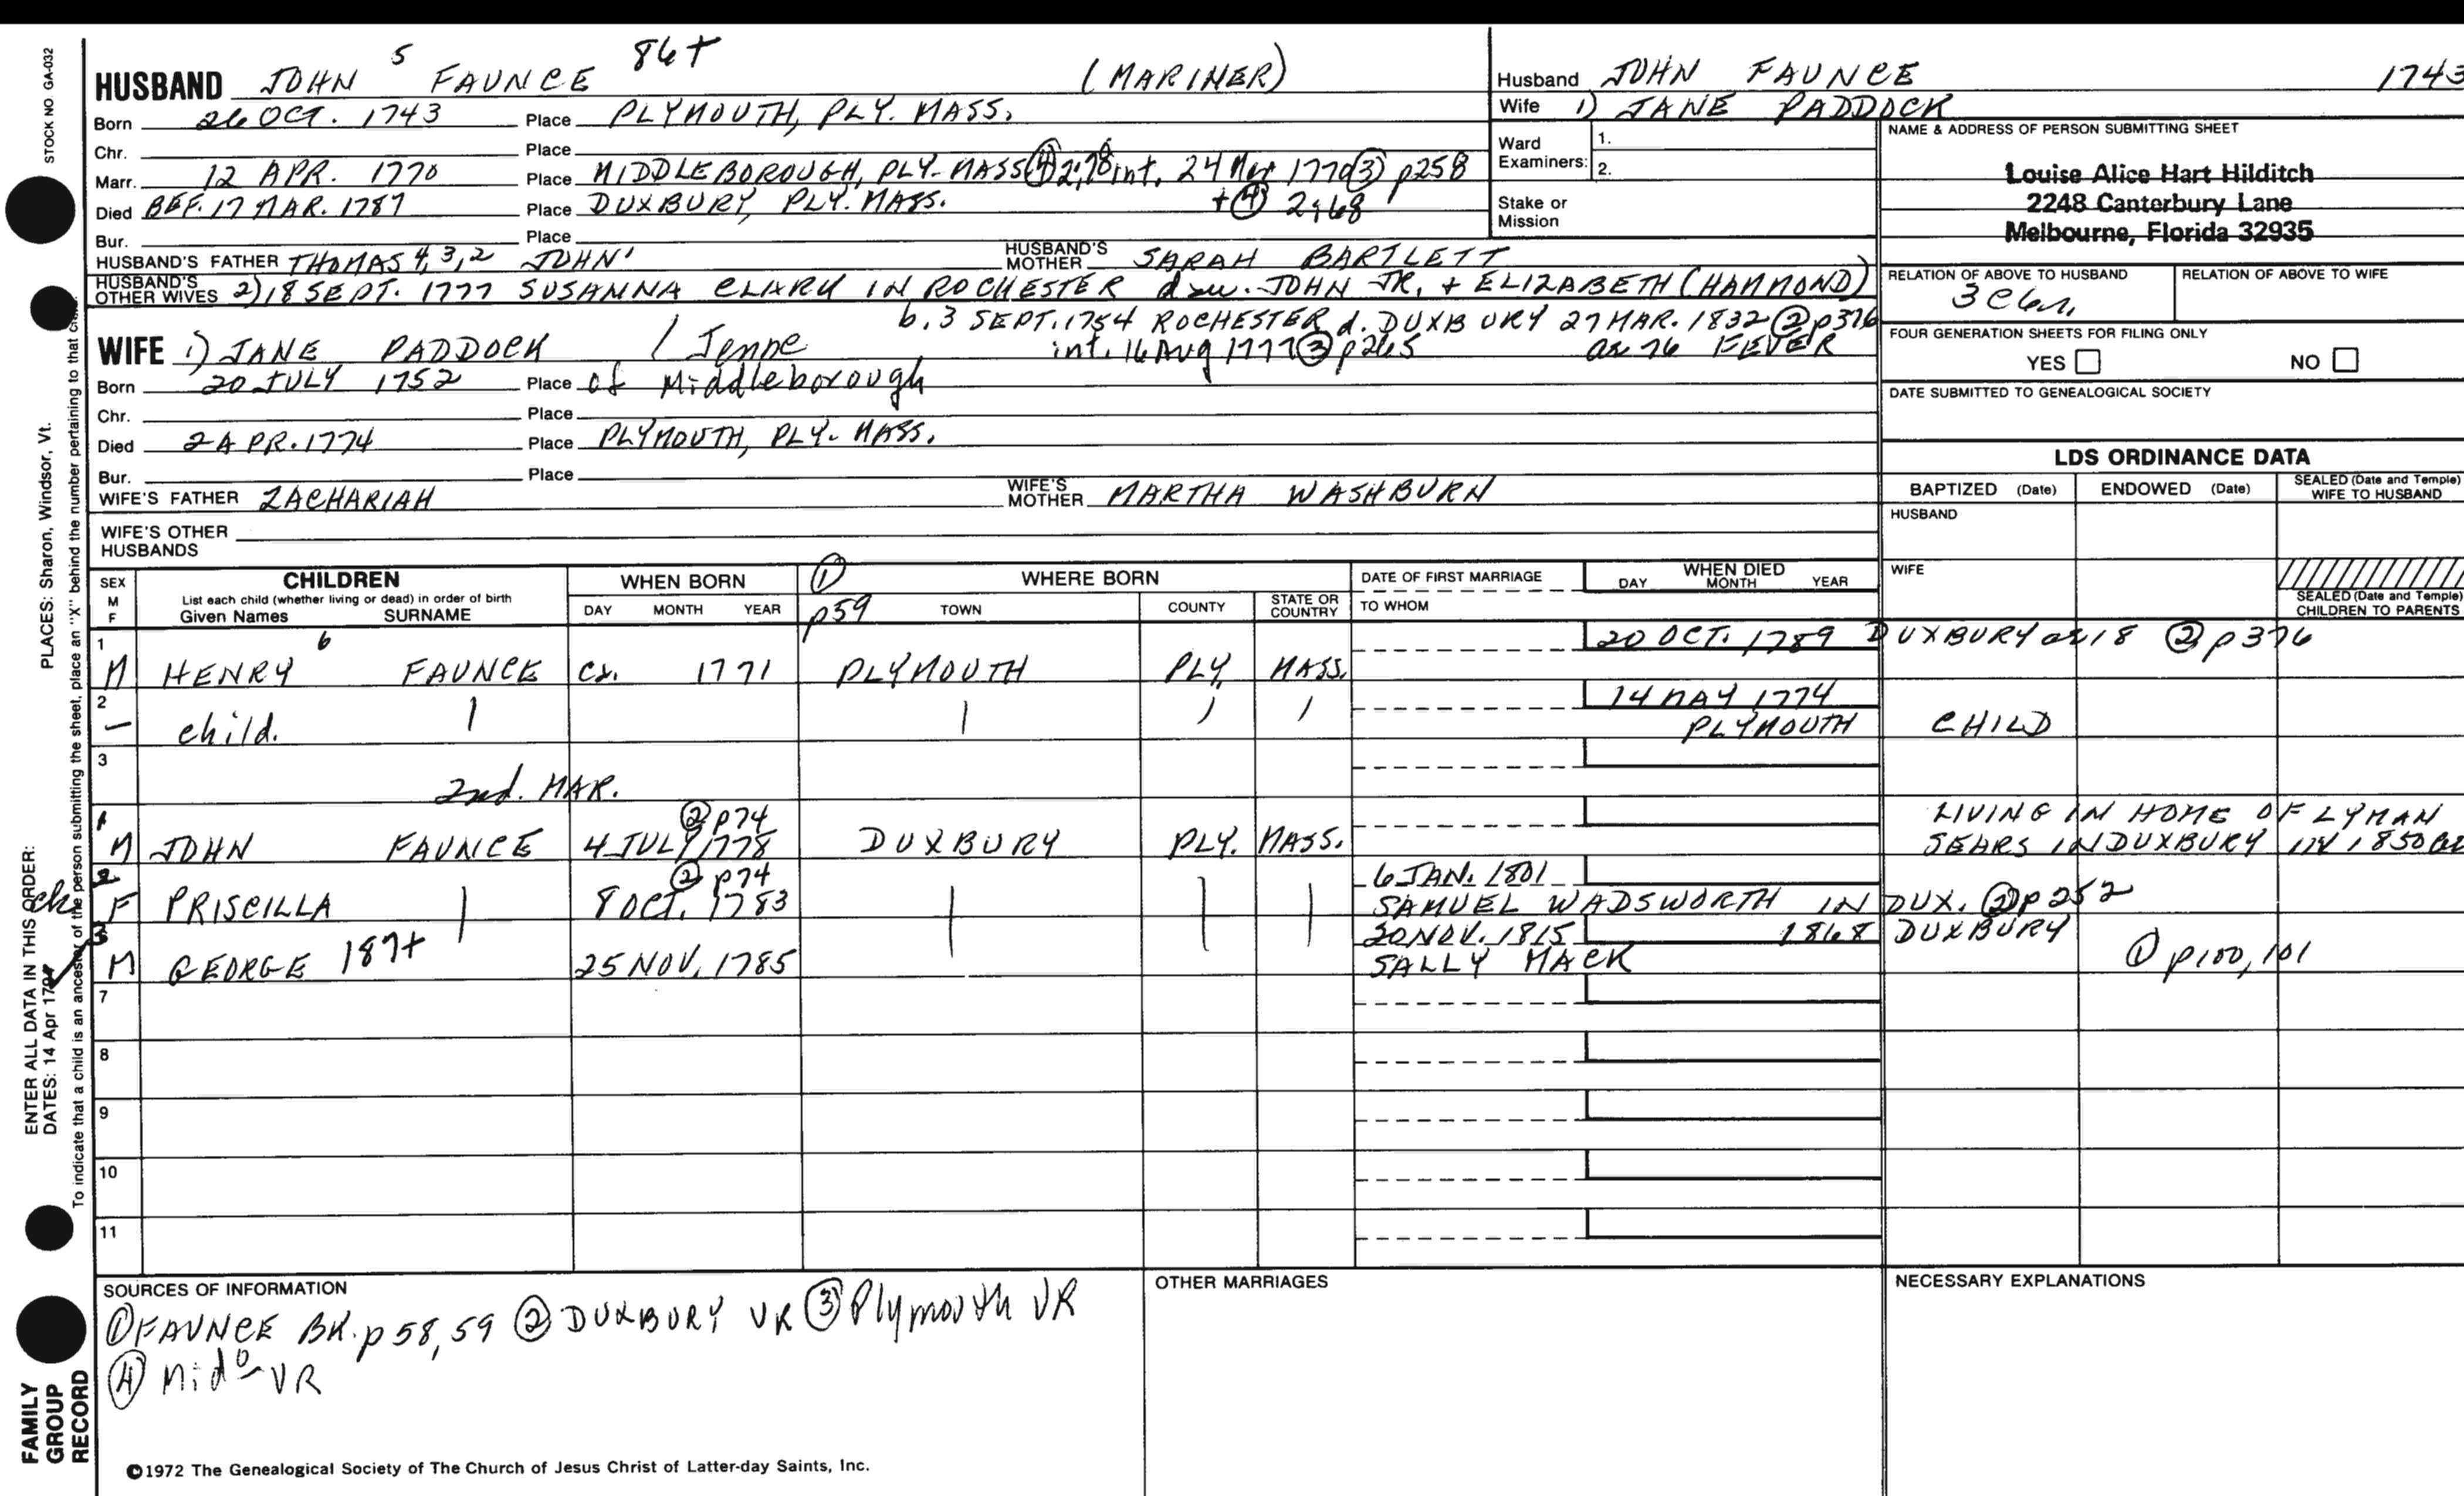 STOCK NO. GA-032
HUSBAND JOHN 5 FAUNCE 86+ (MARINER)
Born 26 OCT. 1743 Place PLYMOUTH, PLY. MASS.
Chr. Place
Marr. 12 APR. 1770 Place MIDDLEBOROUGH, PLY. MASS ④ 2;78 int. 24 Mar 1770 ③ p258
Died BEF. 17 MAR. 1787 Place DUXBURY, PLY. MASS. + ④ 2;68
Bur. Place
HUSBAND'S FATHER THOMAS 4,3,2 JOHN' HUSBAND'S MOTHER SARAH BARTLETT
HUSBAND'S OTHER WIVES 2) 18 SEPT. 1777 SUSANNA CLARK IN ROCHESTER dau. JOHN JR. + ELIZABETH (HAMMOND)
b. 3 SEPT. 1754 ROCHESTER d. DUXBURY 27 MAR. 1832 ② p376
WIFE 1) JANE PADDOCK / Jenne int. 16 Aug 1777 ③ p265 ae 76 FEVER
Born 20 JULY 1752 Place of Middleborough
Chr. Place
Died 2 APR. 1774 Place PLYMOUTH, PLY. MASS.
Bur. Place
WIFE'S FATHER ZACHARIAH WIFE'S MOTHER MARTHA WASHBURN
WIFE'S OTHER HUSBANDS
Husband JOHN FAUNCE 1743
Wife 1) JANE PADDOCK
Ward Examiners: 1.
2.
Stake or Mission
NAME & ADDRESS OF PERSON SUBMITTING SHEET
Louise Alice Hart Hilditch
2248 Canterbury Lane
Melbourne, Florida 32935
RELATION OF ABOVE TO HUSBAND RELATION OF ABOVE TO WIFE
FOUR GENERATION SHEETS FOR FILING ONLY
YES NO
DATE SUBMITTED TO GENEALOGICAL SOCIETY
LDS ORDINANCE DATA
BAPTIZED (Date) ENDOWED (Date) SEALED (Date and Temple) WIFE TO HUSBAND
HUSBAND
WIFE
SEALED (Date and Temple) CHILDREN TO PARENTS
SEX M F CHILDREN WHEN BORN ① p59 WHERE BORN DATE OF FIRST MARRIAGE WHEN DIED
List each child (whether living or dead) in order of birth
Given Names SURNAME DAY MONTH YEAR TOWN COUNTY STATE OR COUNTRY TO WHOM DAY MONTH YEAR
1 6 20 OCT. 1789 DUXBURY ae 18 ② p376
M HENRY FAUNCE Ca. 1771 PLYMOUTH PLY. MASS.
2 14 MAY 1774
— child. PLYMOUTH CHILD
3
2nd. MAR.
1 ② p74 LIVING IN HOME OF LYMAN
M JOHN FAUNCE 4 JULY 1778 DUXBURY PLY. MASS. SEARS IN DUXBURY IN 1850
2 ② p74 6 JAN. 1801
F PRISCILLA 8 OCT. 1783 SAMUEL WADSWORTH IN DUX. ② p252
3 20 NOV. 1815 1868 DUXBURY
M GEORGE 187+ 25 NOV. 1785 SALLY MACK ① p100, 101
7
8
9
10
11
SOURCES OF INFORMATION
① FAUNCE BK. p 58, 59 ② DUXBURY VR ③ Plymouth VR
④ Mido VR
OTHER MARRIAGES
NECESSARY EXPLANATIONS
©1972 The Genealogical Society of The Church of Jesus Christ of Latter-day Saints, Inc.
FAMILY GROUP RECORD
ENTER ALL DATA IN THIS ORDER:
DATES: 14 Apr 1794
PLACES: Sharon, Windsor, Vt.
To indicate that a child is an ancestor of the person submitting the sheet, place an "X" behind the number pertaining to that